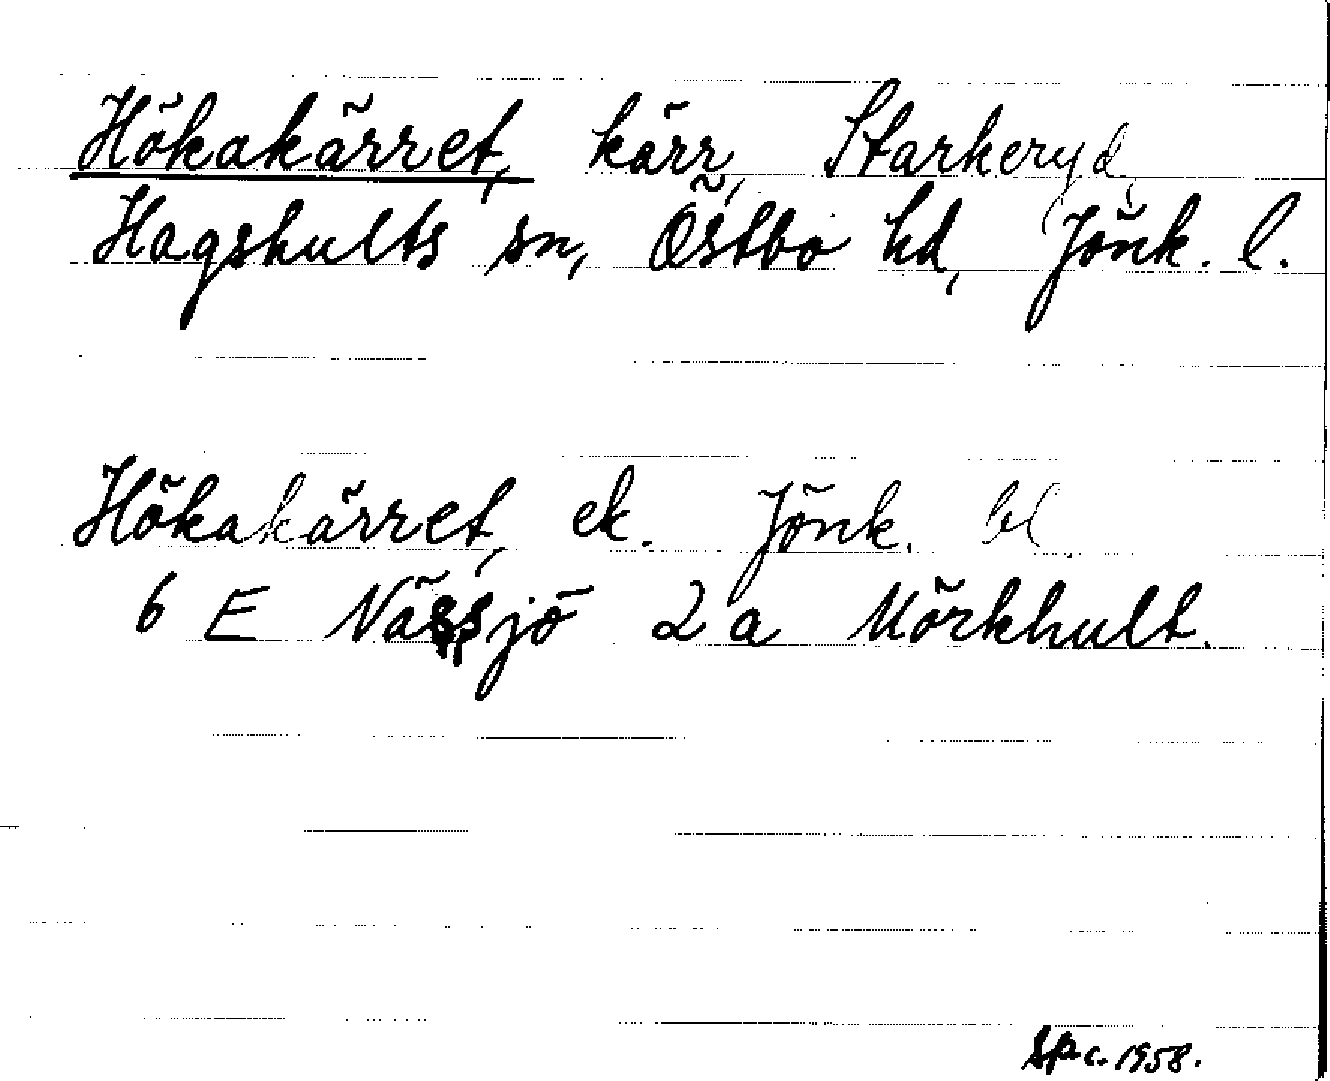 Hökakärret, kärr, Starkeryd,
Hagshults sn, Östbo hd, Jönk. l.
Hökakärret, ek. Jönk. bl.
6 E Nässjö 2 a Mörkhult.
Sp c. 1958.